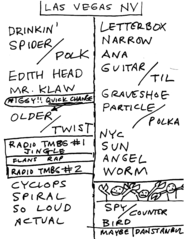 LAS VEGAS NV
DRINKIN'
SPIDER/
POLK
EDITH HEAD
MR. KLAW
NIGGY!! QUICK CHANGE
OLDER/
TWIST
RADIO TMBG #1
JINGLE
FLANS RAP
RADIO TMBG #2
CYCLOPS
SPIRAL
SO LOUD
ACTUAL
LETTERBOX
NARROW
ANA
GUITAR/
TIL
GRAVESHOE
PARTICLE/
POLKA
NYC
SUN
ANGEL
WORM
SPY/COUNTER
BIRD
MAYBE/DANSTANBUL